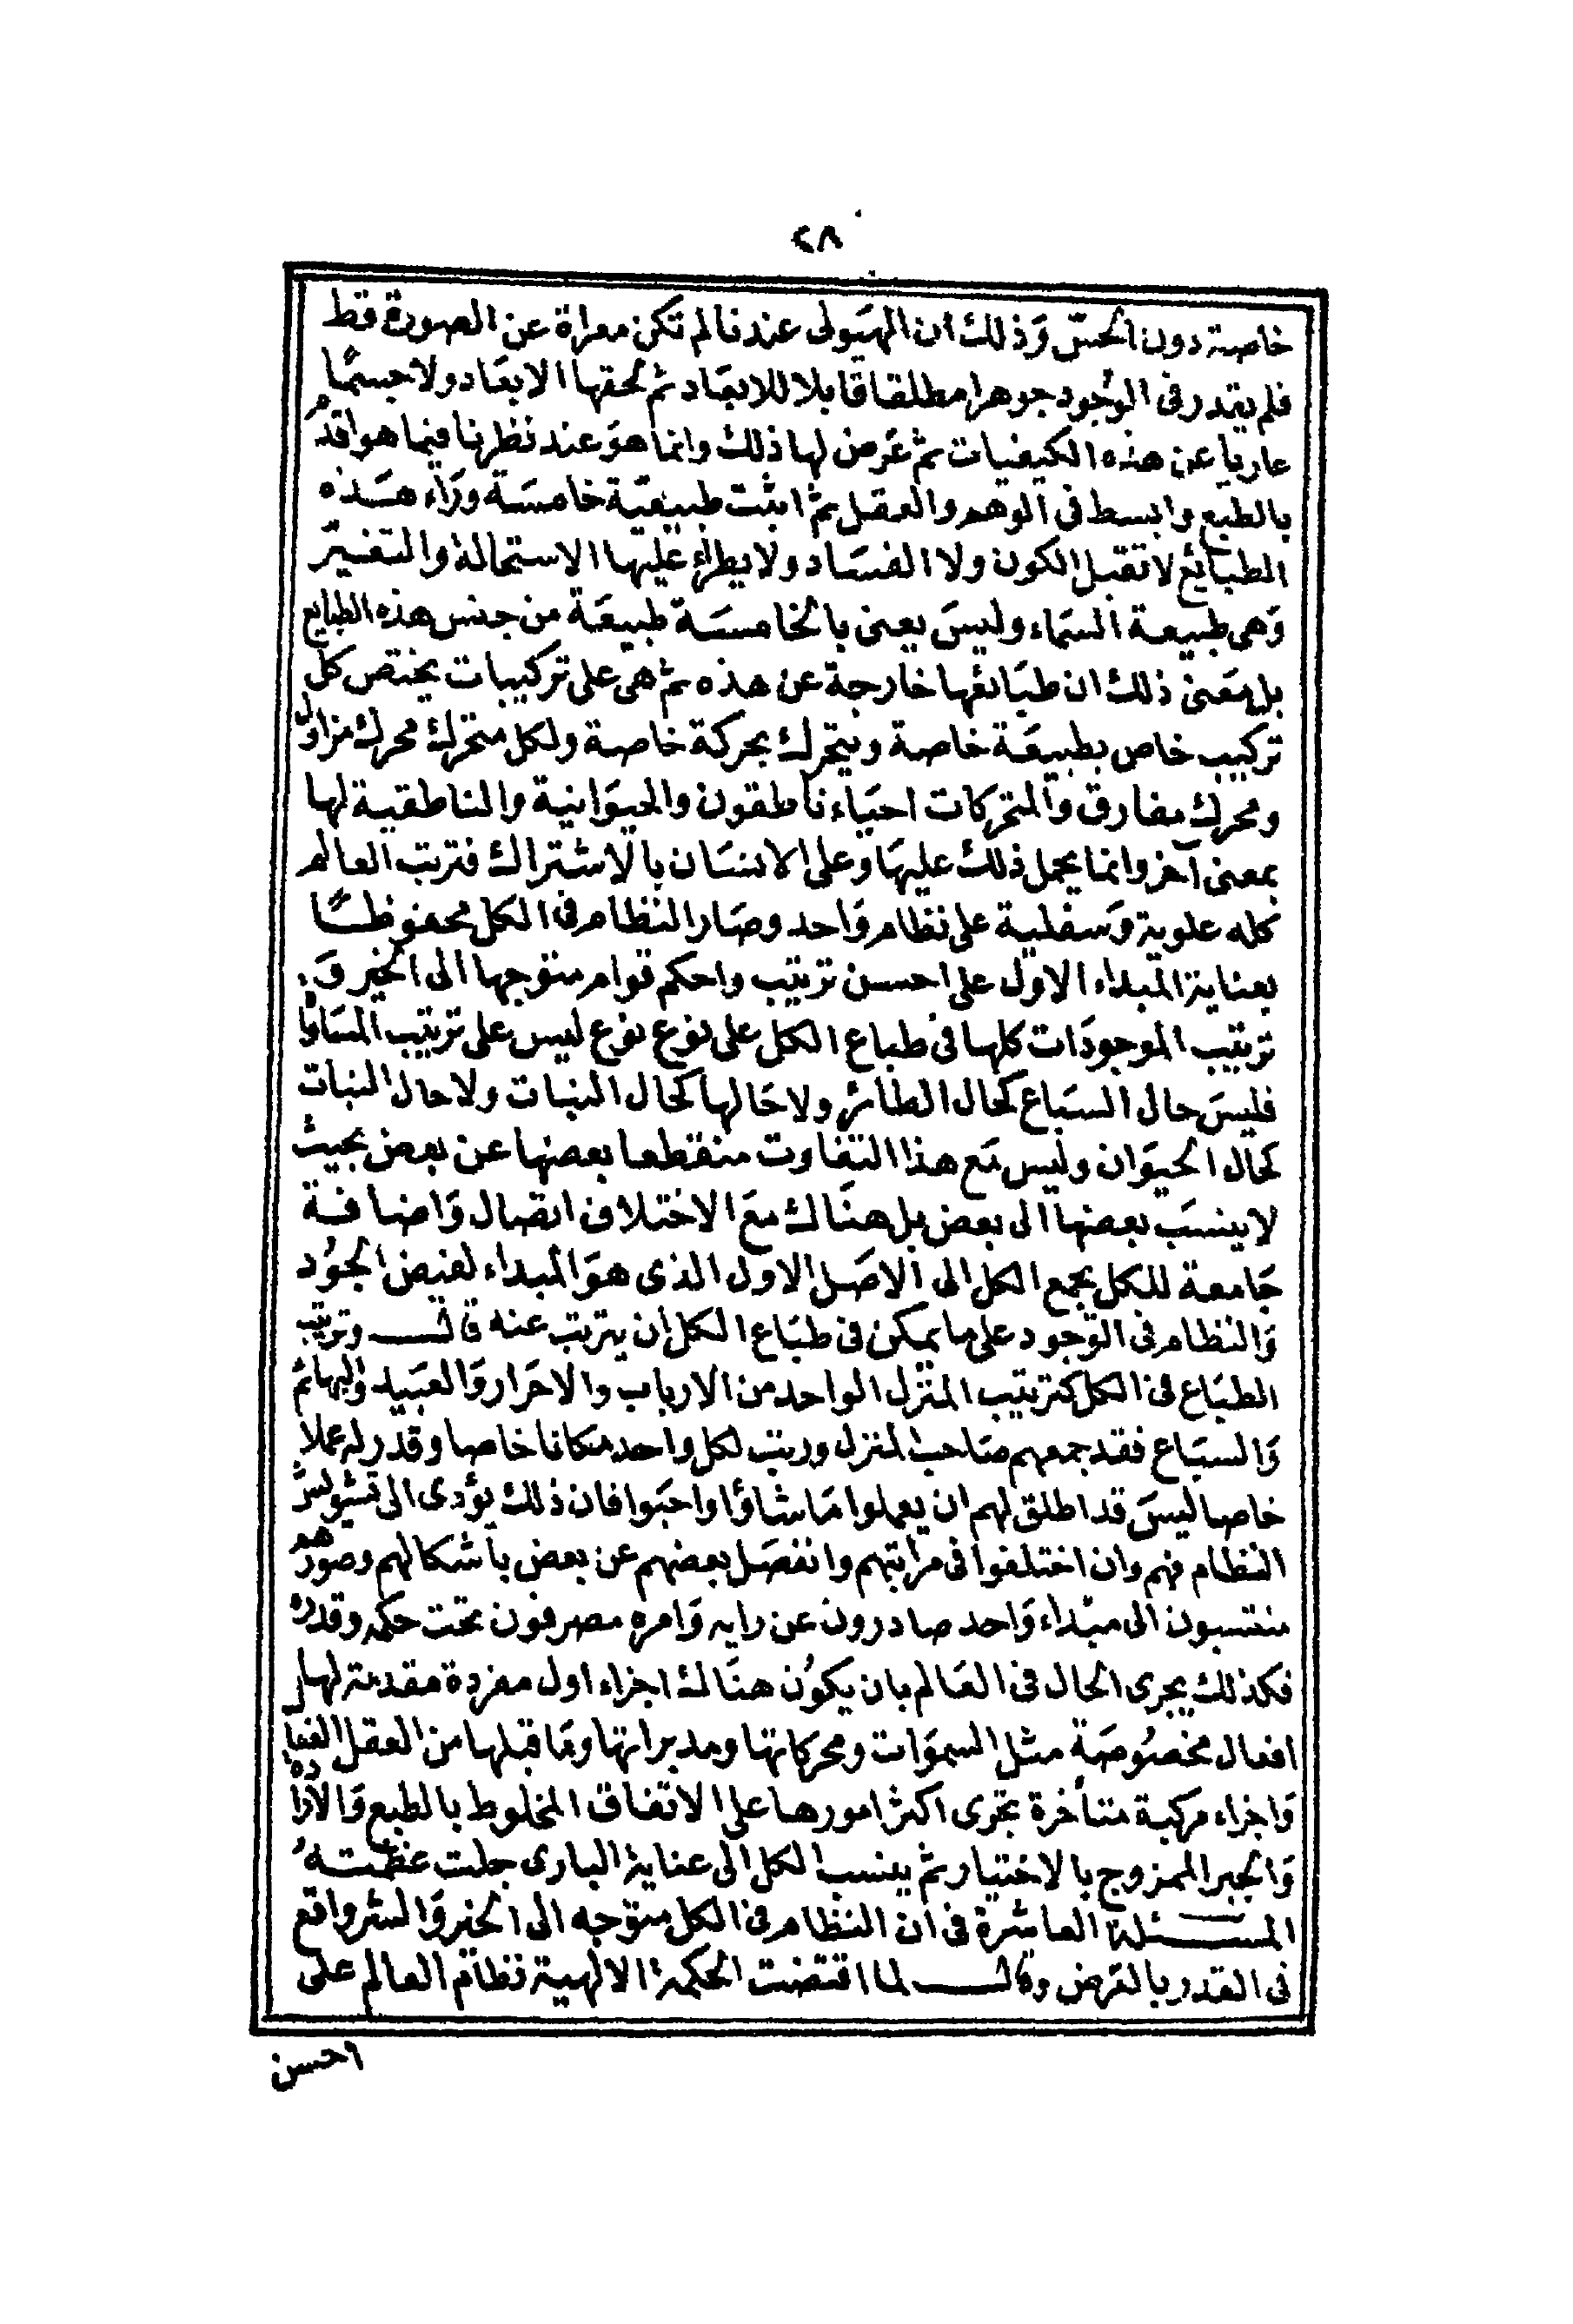 ٢٨
خاصة دون الحسّ وَذلك ان الهيَولى عندنا لم تكن معراة عن الصورة قط
فلم يقدر فى الوُجود جوهرا مطلقا قابلا للابعَاد ثم لحقها الابعَاد ولا جسمًا
عاريا عن هذه الكيفيات ثم عَرض لها ذلك وانما هوَ عند نظرنا فيما هو اقدم
بالطبع وابسط فى الوهم والعقل ثم اثبت طبيعَية خامسَة ورَاء هَذه
الطبائع لا تقبل الكون ولا الفسَاد ولا يطراء عليها الاستحالة والتغيّر
وَهى طبيعة السمَاء وليسَ يعنى بالخامسَة طبيعَة من جنس هذه الطبايع
بل معَنى ذلك ان طبَائعها خارجة عن هذه ثم هى على تركيبات يختص كل
تركيب خاص بطبيعَة خاصة ويتحرك بحركة خاصة ولكل متحرك محرك مزاول
ومحرك مفارق والمتحركات احيَاء ناطقون والحيوَانية والناطقية لها
بمعنى آخر وانما يحمل ذلك عليهَا وعلى الانسَان بالاشتراك فترتب العالم
كله علوية وَسفلية على نظام وَاحد وصَار النظام فى الكل محفوظًا
بعناية المبداء الاول على احسن ترتيب واحكم قوام متوجها الى الخير وَ
ترتيب الموجودَات كلها فى طباع الكل على نوع نوع ليس على ترتيب المسَاواة
فليسَ حال السبَاع كحال الطائر ولا حَالها كحال النبات ولا حال النبات
كحال الحيوَان وليس مَع هذا التفاوت منقطعا بعضها عن بعض بحيث
لا ينسَب بعضها الى بعض بل هنَاك معَ الاختلاف اتصال وَاضافة
جَامعة للكل يجمع الكل الى الاصَل الاول الذى هوَ المبداء لفيض الجوُد
وَالنظام فى الوَجود على ما يمكن فى طبَاع الكل ان يترتب عنه قال وترتيب
الطبَاع فى الكل كترتيب المنزل الواحد من الارباب والاحَرار وَالعبَيد والبهائم
وَالسبَاع فقد جمعهم صَاحب المنزل ورتب لكل واحد مكانا خاصا وقدر له عملا
خاصا ليسَ قد اطلق لهم ان يعملوا مَا شاؤا واحبَوا فان ذلك يؤدى الى تشويش
النظام فهم وان اختلفوا فى مراتبهم وانفصَل بعضهم عن بعض بأشكالهم وصورهم
منتسبون الى مبَداء وَاحد صادرون عن رايه وَامره مصرفون تحت حكمه وقدره
فكذلك يجرى الحال فى العَالم بان يكوُن هنَالك اجزاء اول مفردة مقدمة لها
افعال مخصوُصَة مثل السموَات ومحركاتها ومدبراتها ومَا قبلها من العقل الفعال
وَاجزاء مركبة متأخرة تجرى اكثر امورها على الاتفاق المخلوط بالطبع وَالارادة
وَالجبر الممزوج بالاختيار ثم ينسب الكل الى عناية البارى جلت عظمتهُ
المسئلة العاشرة فى ان النظام فى الكل متوَجه الى الخير وَالشر واقع
فى القدر بالعَرض وقال لما اقتضت الحكمة الالهية نظام العالم على
احسن